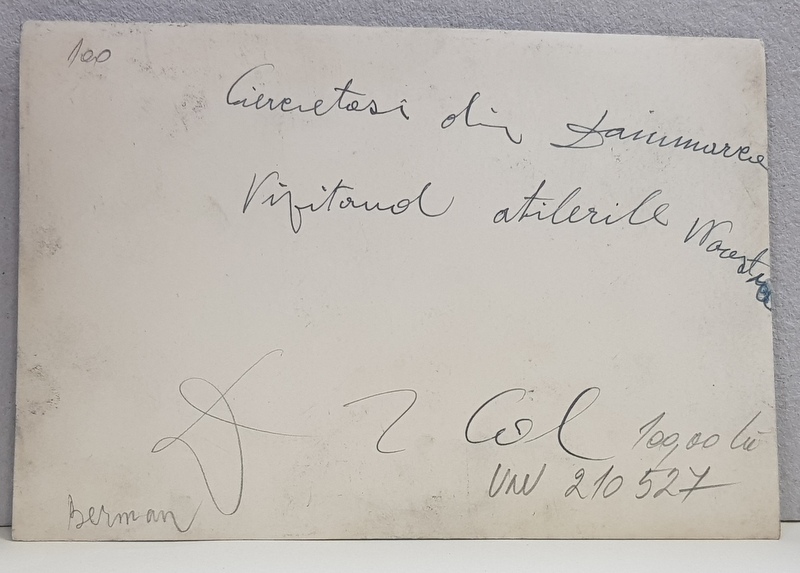 100
Cercetasi din Dainmarca
Vizitand atilerile Noastre
D 2 Col 100,00 lei
UW 210 527
Berman